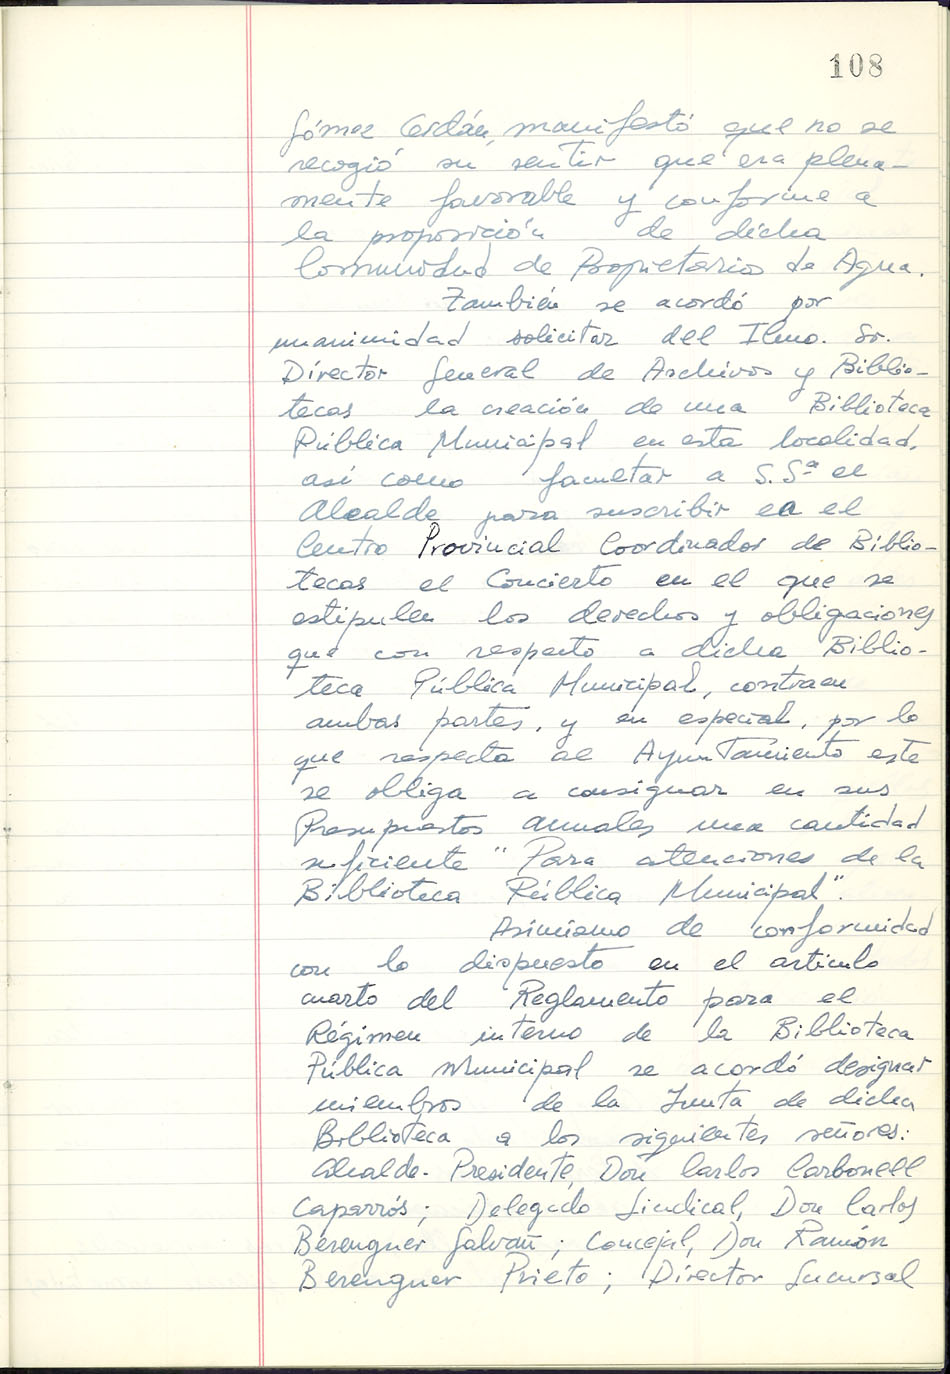 108
Gómez Cerdán, manifestó que no se
recogió su sentir que era plena-
mente favorable y conforme a
la proposición de dicha
Comunidad de Propietarios de Agua.
También se acordó por
unanimidad solicitar del Ilmo. Sr.
Director General de Archivos y Biblio-
tecas la creación de una Biblioteca
Pública Municipal en esta localidad,
así como facultar a S.Sª el
Alcalde para suscribir en el
Centro Provincial Coordinador de Biblio-
tecas el Concierto en el que se
estipulen los derechos y obligaciones
que con respecto a dicha Biblio-
teca Pública Municipal, contraen
ambas partes, y en especial, por lo
que respecta al Ayuntamiento este
se obliga a consignar en sus
Presupuestos anuales una cantidad
suficiente "Para atenciones de la
Biblioteca Pública Municipal".
Asimismo de conformidad
con lo dispuesto en el artículo
cuarto del Reglamento para el
Régimen interno de la Biblioteca
Pública Municipal se acordó designar
miembros de la Junta de dicha
Biblioteca a los siguientes señores:
Alcalde-Presidente, Don Carlos Carbonell
Caparrós; Delegado Sindical, Don Carlos
Berenguer Galvañ; Concejal, Don Ramón
Berenguer Prieto; Director Sucursal